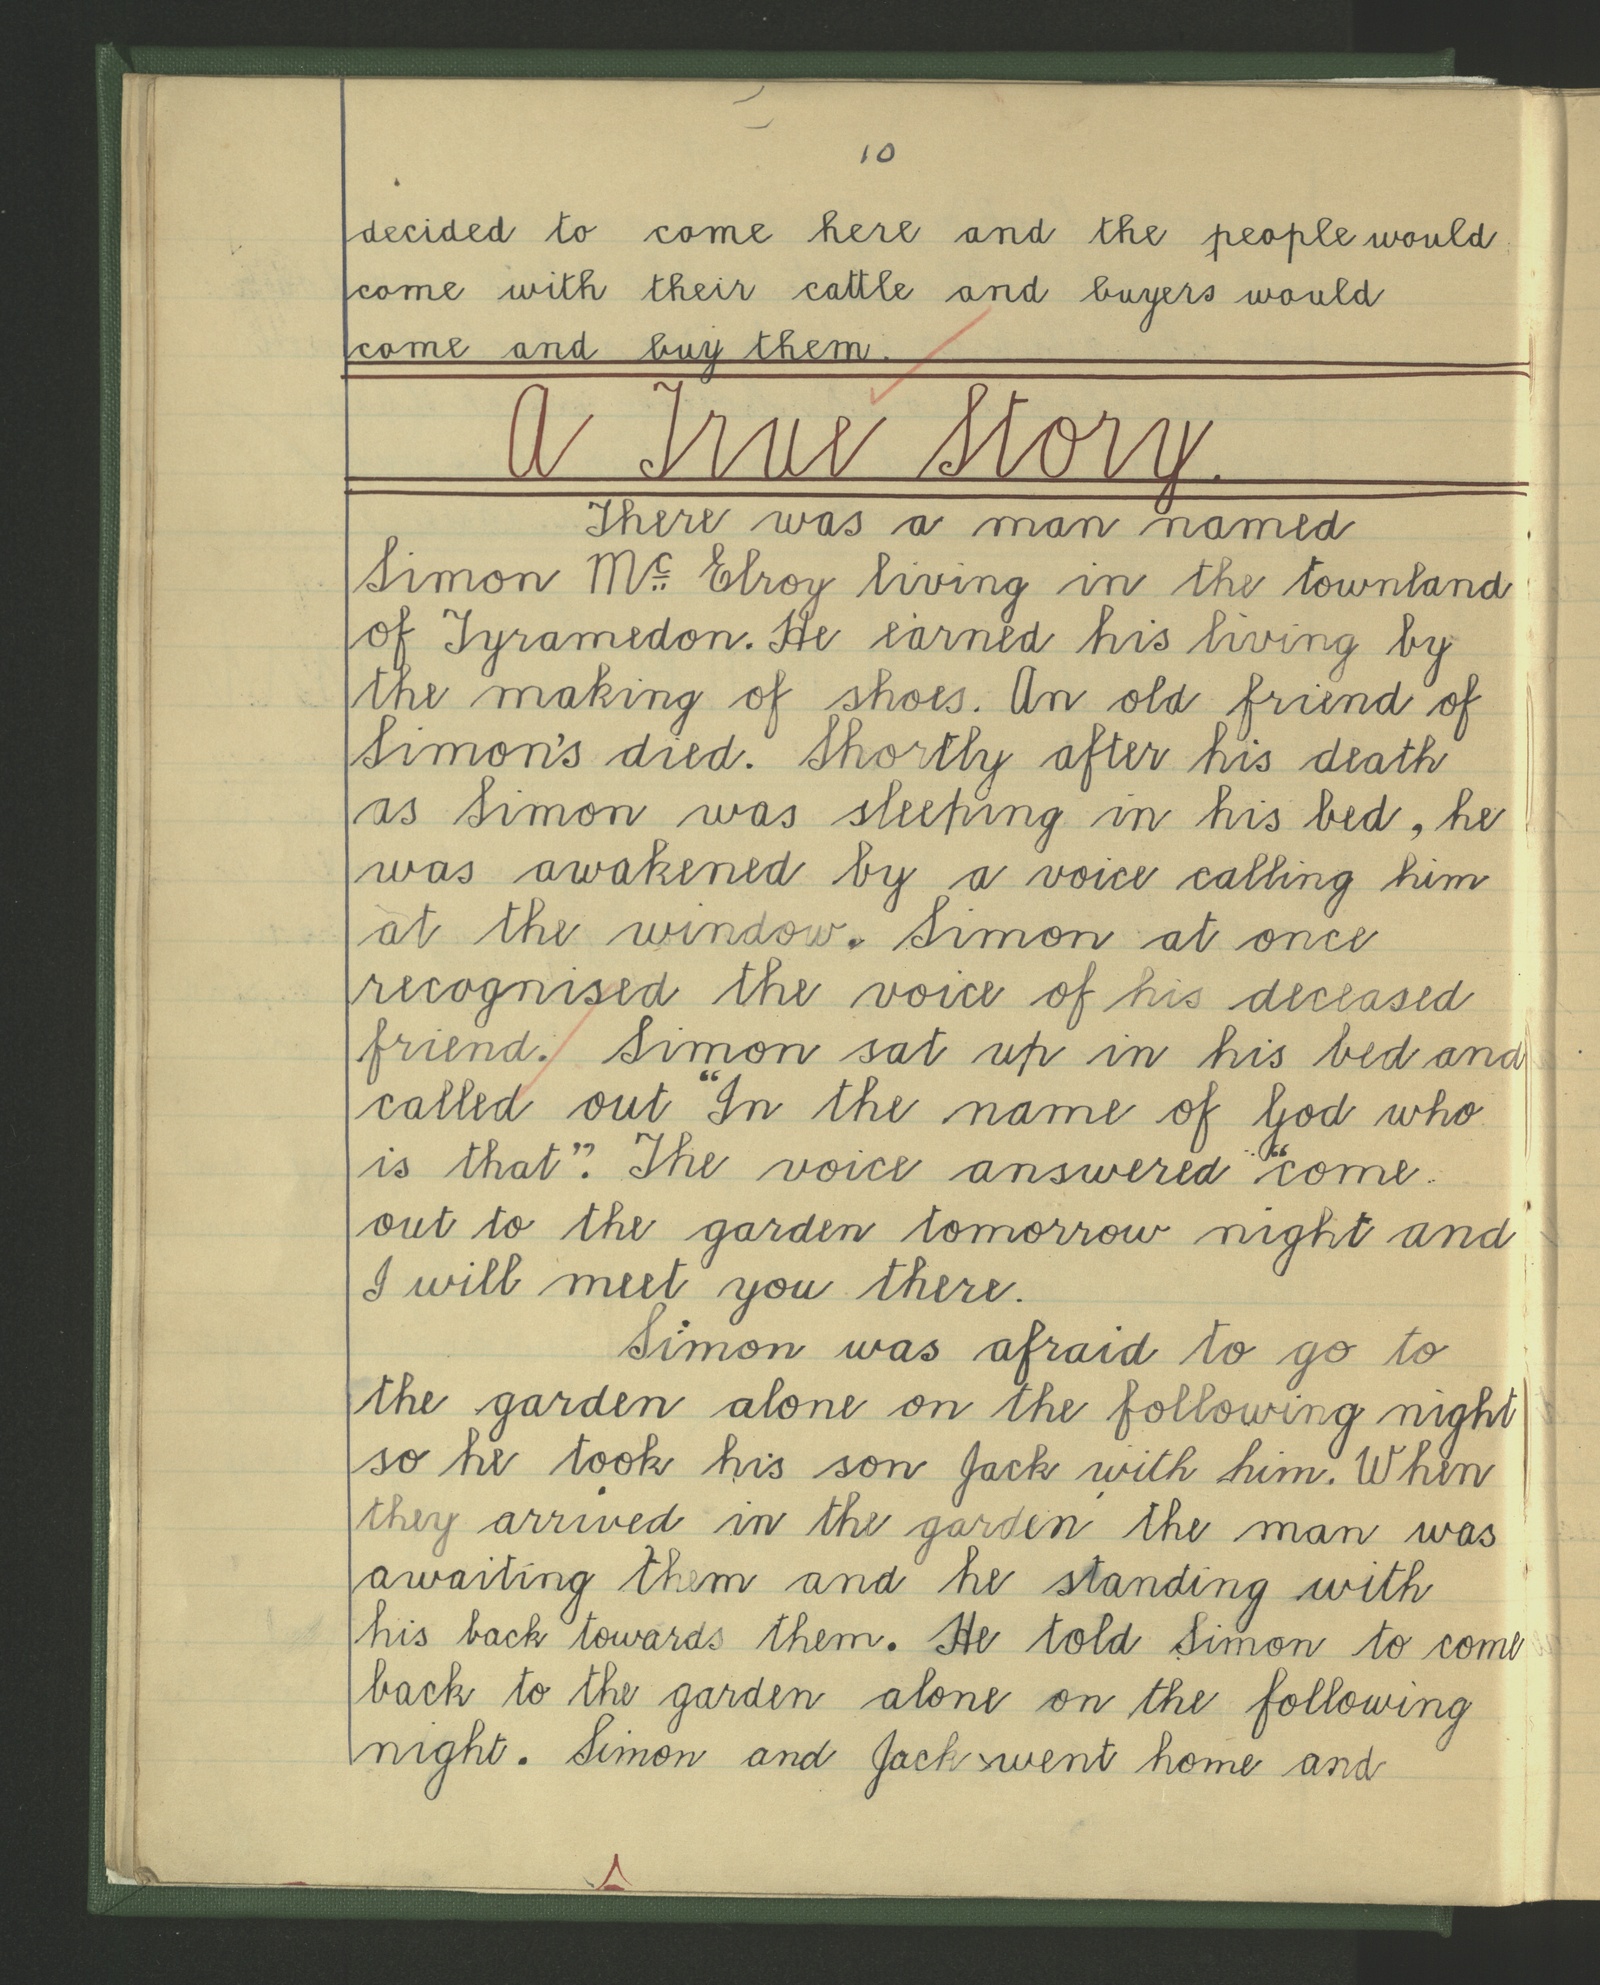 10
decided to come here and the people would
come with their cattle and buyers would
come and buy them.
A True Story.
There was a man named
Simon Mc Elroy living in the townland
of Tyramedon. He earned his living by
the making of shoes. An old friend of
Simon's died. Shortly after his death
as Simon was sleeping in his bed, he
was awakened by a voice calling him
at the window. Simon at once
recognised the voice of his deceased
friend. Simon sat up in his bed and
called out "In the name of God who
is that"? The voice answered "come
out to the garden tomorrow night and
I will meet you there.
Simon was afraid to go to
the garden alone on the following night
so he took his son Jack with him. When
they arrived in the garden the man was
awaiting them and he standing with
his back towards them. He told Simon to come
back to the garden alone on the following
night. Simon and Jack went home and